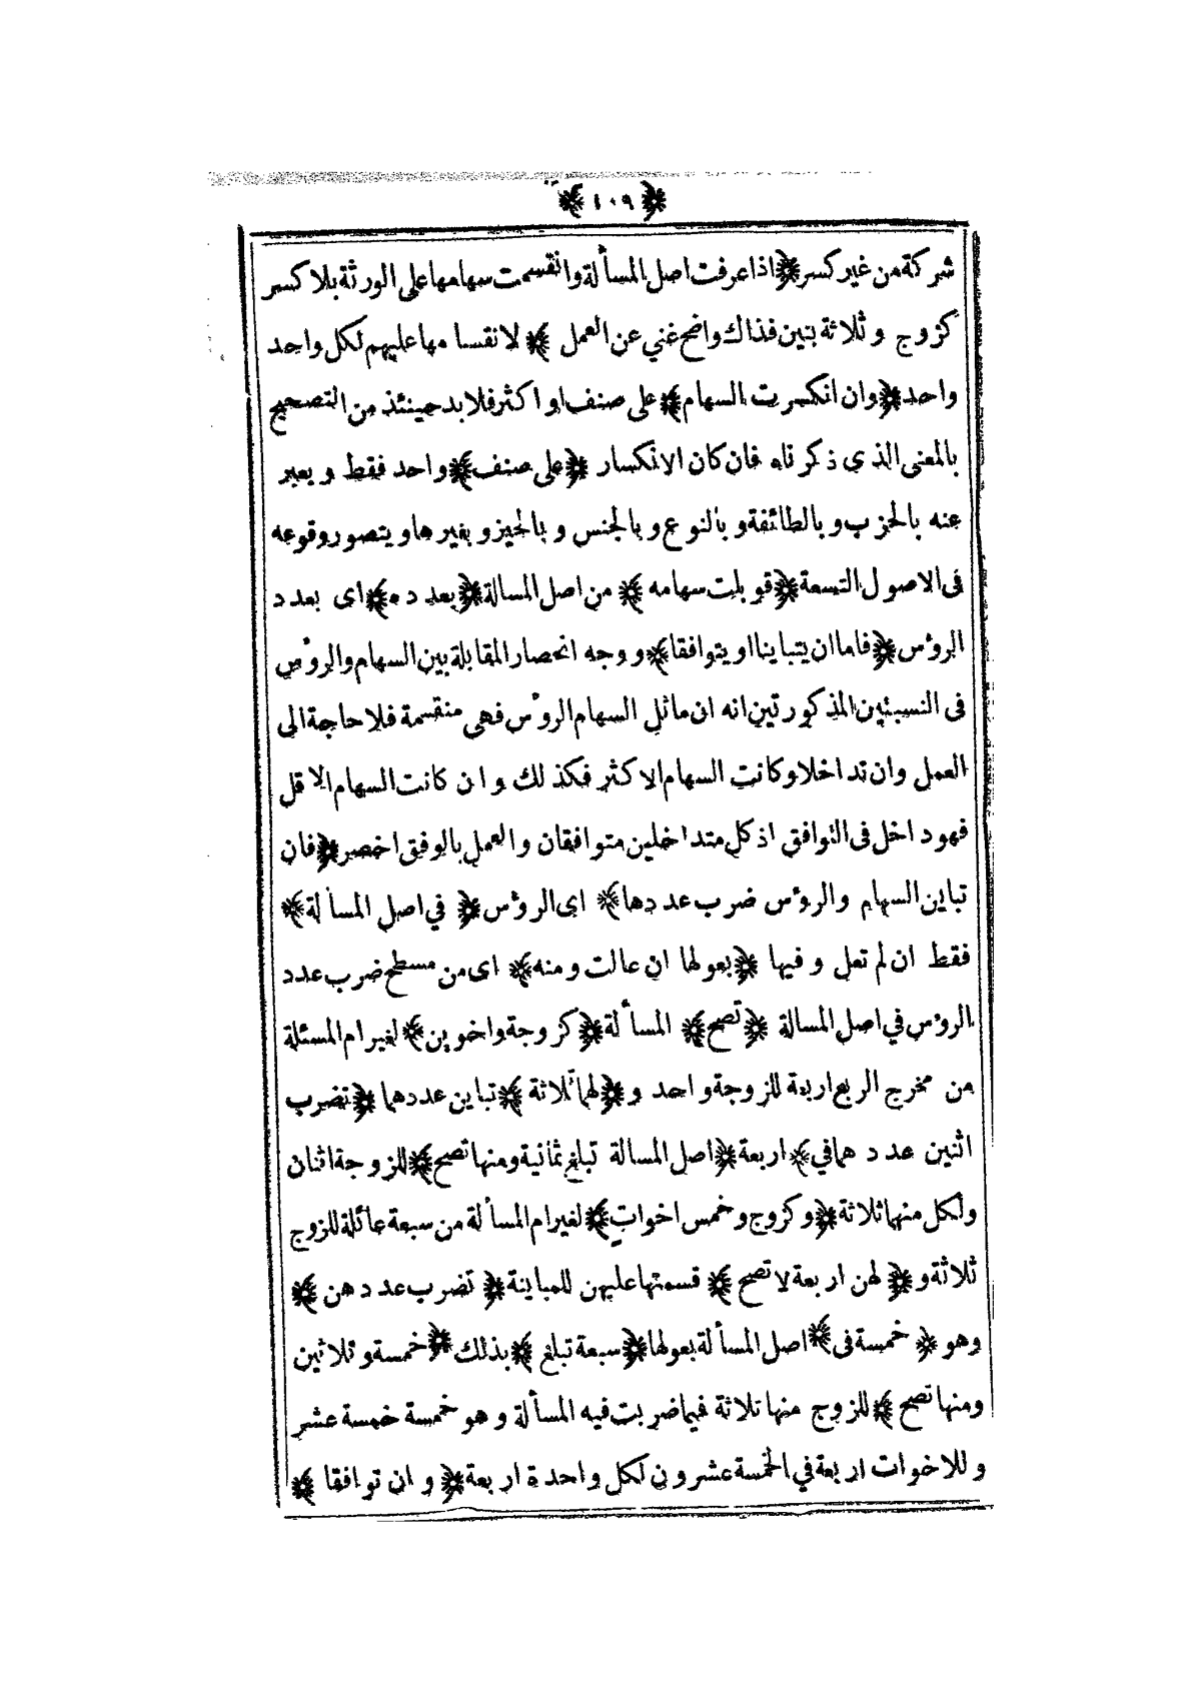 ﴿ ٤٠٩ ﴾
شركة من غير كسر ﴿ اذا عرفت اصل المسألة وانقسمت سهامها على الورثة بلا كسر
كزوج وثلاثة بنين فذاك واضح غني عن العمل ﴾ لانقسامها عليهم لكل واحد
واحد ﴿ وان انكسرت السهام ﴾ على صنف او اكثر فلا بد حينئذ من التصحيح
بالمعنى الذى ذكرناه فان كان الانكسار ﴿ على صنف ﴾ واحد فقط ويعبر
عنه بالحزب وبالطائفة وبالنوع وبالجنس وبالحيز وبغيرها ويتصور وقوعه
فى الاصول التسعة ﴿ قوبلت سهامه ﴾ من اصل المسالة ﴿ بعدده ﴾ اى بعدد
الرؤس ﴿ فاما ان يتباينا او يتوافقا ﴾ ووجه انحصار المقابلة بين السهام والرؤس
فى النسبتين المذكورتين انه ان ماثل السهام الرؤس فهى منقسمة فلا حاجة الى
العمل وان تداخلا وكانت السهام الاكثر فكذلك وان كانت السهام الاقل
فهو داخل فى التوافق اذ كل متداخلين متوافقان والعمل بالوفق اخصر ﴿ فان
تباين السهام والرؤس ضرب عددها ﴾ اى الرؤس ﴿ في اصل المسألة ﴾
فقط ان لم تعل وفيها ﴿ بعولها ان عالت ومنه ﴾ اى من مسطح ضرب عدد
الرؤس في اصل المسالة ﴿ تصح ﴾ المسألة ﴿ كزوجة واخوين ﴾ لغير ام المسئلة
من مخرج الربع اربعة للزوجة واحد و ﴿ لهما ثلاثة ﴾ تباين عددهما ﴿ تضرب
اثنين عددهما في ﴾ اربعة ﴿ اصل المسالة تبلغ ثمانية ومنها تصح ﴾ للزوجة اثنان
ولكل منهما ثلاثة ﴿ وكزوج وخمس اخوات ﴾ لغير ام المسألة من سبعة عائلة للزوج
ثلاثة و ﴿ لهن اربعة لا تصح ﴾ قسمتها عليهن للمباينة ﴿ تضرب عددهن ﴾
وهو ﴿ خمسة فى ﴾ اصل المسألة بعولها ﴿ سبعة تبلغ ﴾ بذلك ﴿ خمسة وثلاثين
ومنها تصح ﴾ للزوج منها ثلاثة فيما ضربت فيه المسألة وهو خمسة خمسة عشر
وللاخوات اربعة في الخمسة عشرون لكل واحدة اربعة ﴿ وان توافقا ﴾